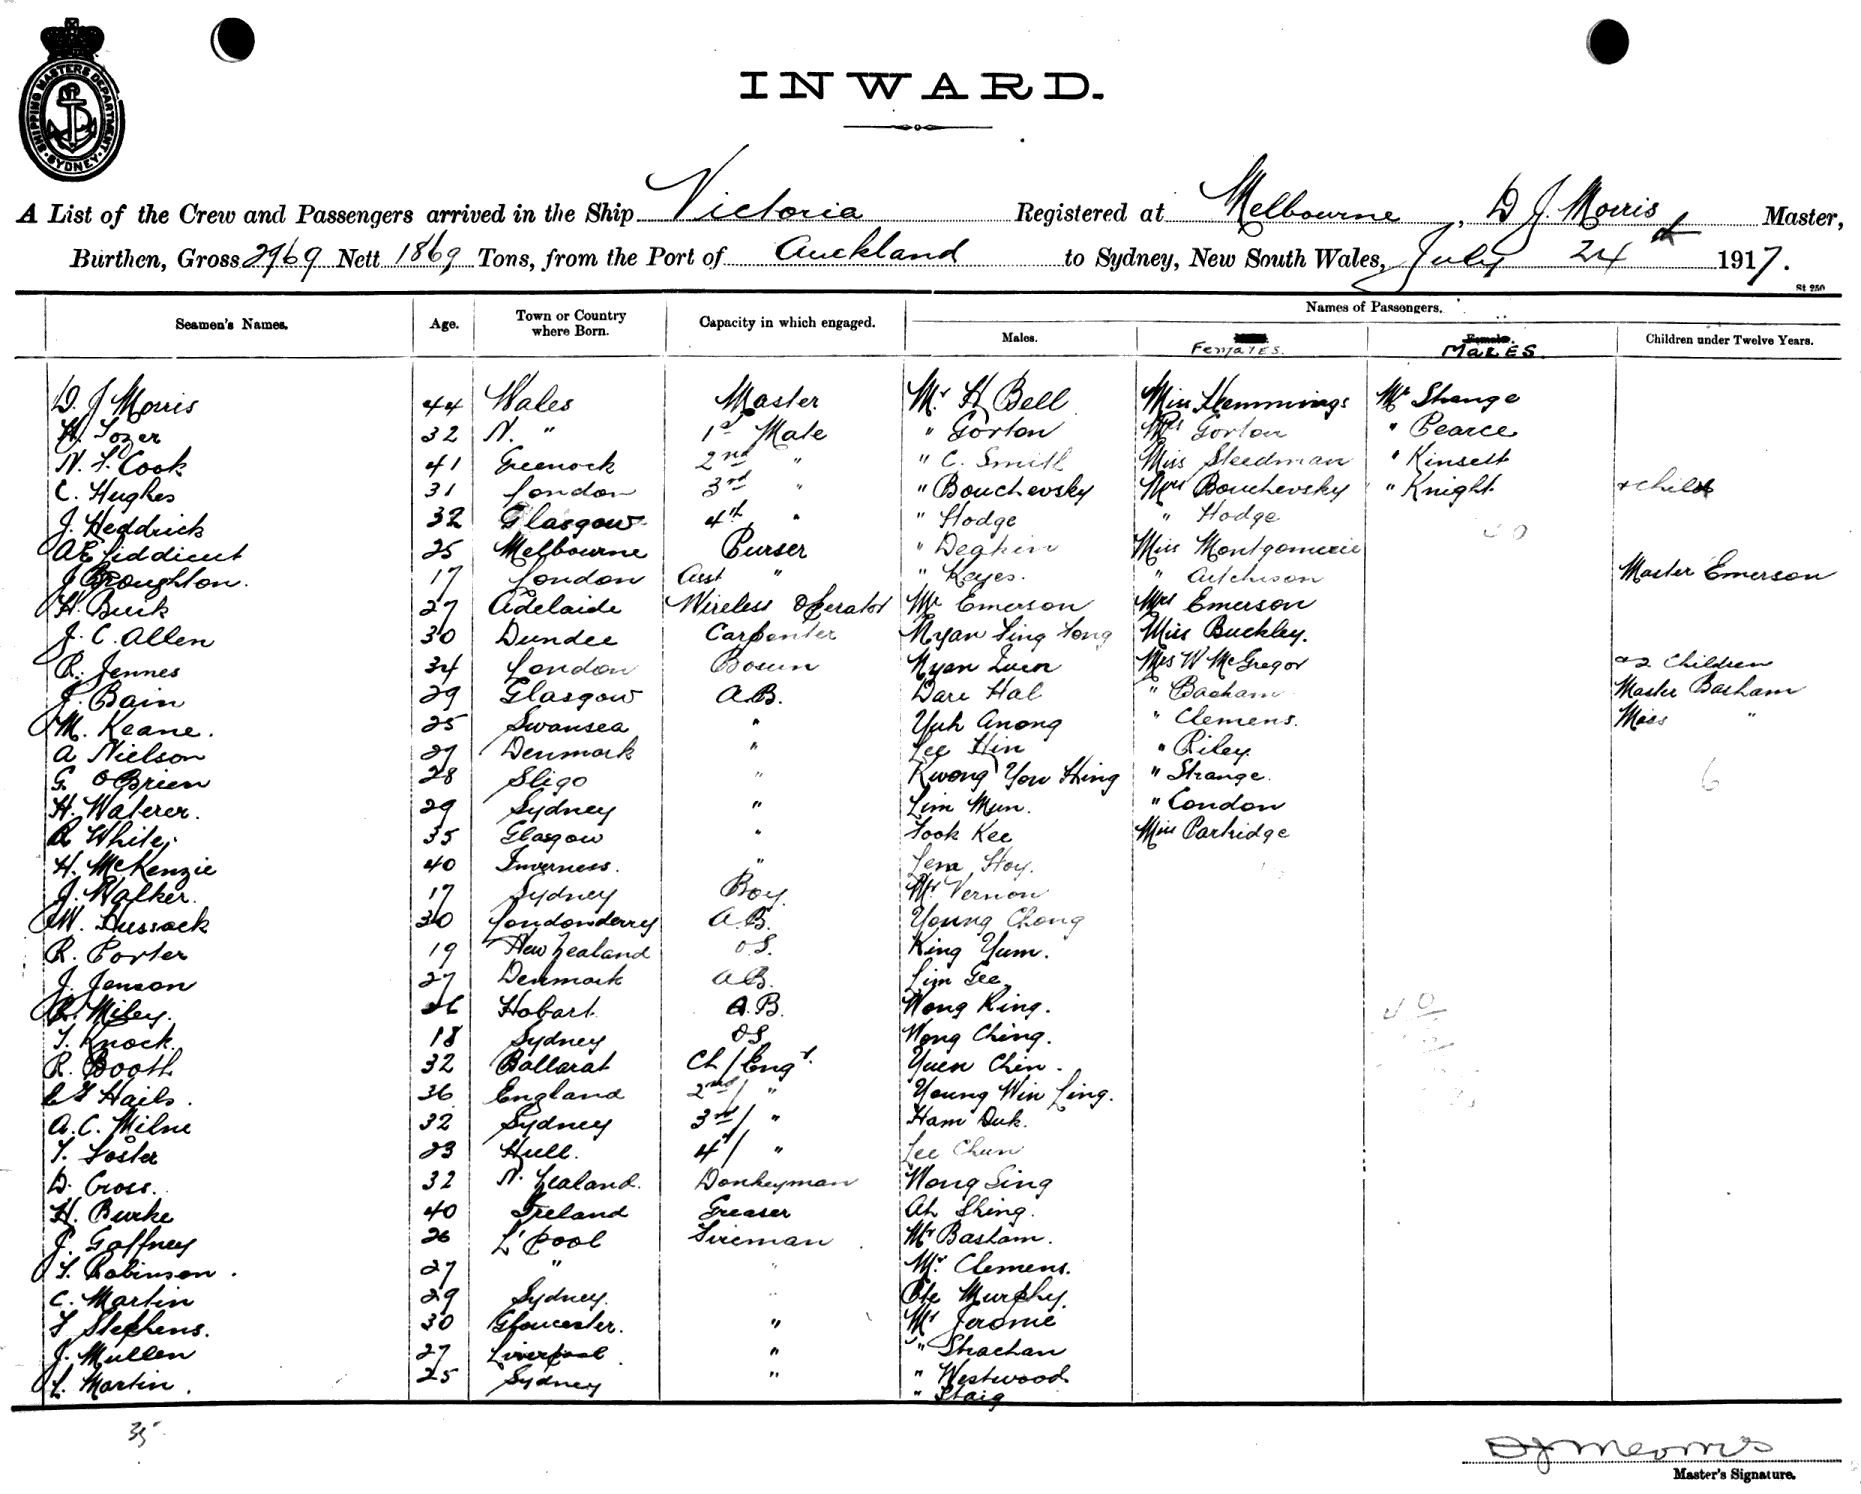 SHIPPING MASTERS DEPARTMENT
SYDNEY
INWARD.
A List of the Crew and Passengers arrived in the Ship Victoria Registered at Melbourne, D J. Morris Master,
Burthen, Gross 2969 Nett 1869 Tons, from the Port of Auckland to Sydney, New South Wales, July 24th 1917.
St 250
Seamen's Names. Age. Town or Country where Born. Capacity in which engaged. Names of Passengers.
Males. Females. Males. Children under Twelve Years.
D. J Morris 44 Wales Master Mr H Bell Miss Hemmings Mr Strange
H. Tozer 32 N. " 1st Mate " Gorton Mrs Gorton " Pearce
N. F. Cook 41 Greenock 2nd " " C. Smith Miss Steedman " Kinsett
C. Hughes 31 London 3rd " " Bouchevsky Mrs Bouchevsky " Knight + child
J. Heddrick 32 Glasgow 4th " " Hodge " Hodge
A E Liddicut 25 Melbourne Purser " Deakin Miss Montgomerie
J Broughton. 17 London Asst " " Keyes. " Aitchison Master Emerson
H. Buik 27 Adelaide Wireless Operator Mr Emerson Mrs Emerson
J. C. Allen 30 Dundee Carpenter Nyan Sing Tong Miss Buckley.
R. Jennes 34 London Bosun Nyan Zuen Mrs W McGregor & 2 Children
J. Bain 29 Glasgow A.B. Dare Hal " Basham Master Basham
M. Keane. 25 Swansea " Yuk Anong " Clemens. Miss "
A Nielson 27 Denmark " Lee Hin " Riley.
G. O'Brien 28 Sligo " Kwong You Hing " Strange. 6
H. Waterer. 29 Sydney " Lim Mun. " Condon
R White, 35 Glasgow " Fook Kee Miss Partridge
H. McKenzie 40 Inverness. " Lem Hoy.
J. Walker. 17 Sydney Boy. Mr Vernon
W. Hussack 30 Londonderry A.B. Young Chong
R. Porter 19 New Zealand O.S. King Yum.
J. Jenson 27 Denmark A.B. Lim Gee.
R. Miley. 26 Hobart A.B. Wong King.
T. Knock. 18 Sydney OS Wong Ching.
R. Booth 32 Ballarat Ch/Engr. Yuen Chin.
Hails. 36 England 2nd/ " Young Win Ling.
A. C. Milne 32 Sydney 3rd/ " Ham Duk.
T. Foster 23 Hull. 4/ " Lee Chun
D. Cross. 32 N. Zealand. Donkeyman Wong Sing
H. Burke 40 Ireland Greaser Ah Shing.
J. Gaffney 26 L'pool Fireman Mr Basham.
T. Robinson. 27 " " Mr. Clemens.
C. Martin 29 Sydney. " Pte Murphy.
T Stephens. 30 Gloucester. " Mr Jerome
J. Mullen 27 Liverpool. " " Strachan
L. Martin. 25 Sydney " " Westwood
" Staig
35
D J Morris
Master's Signature.